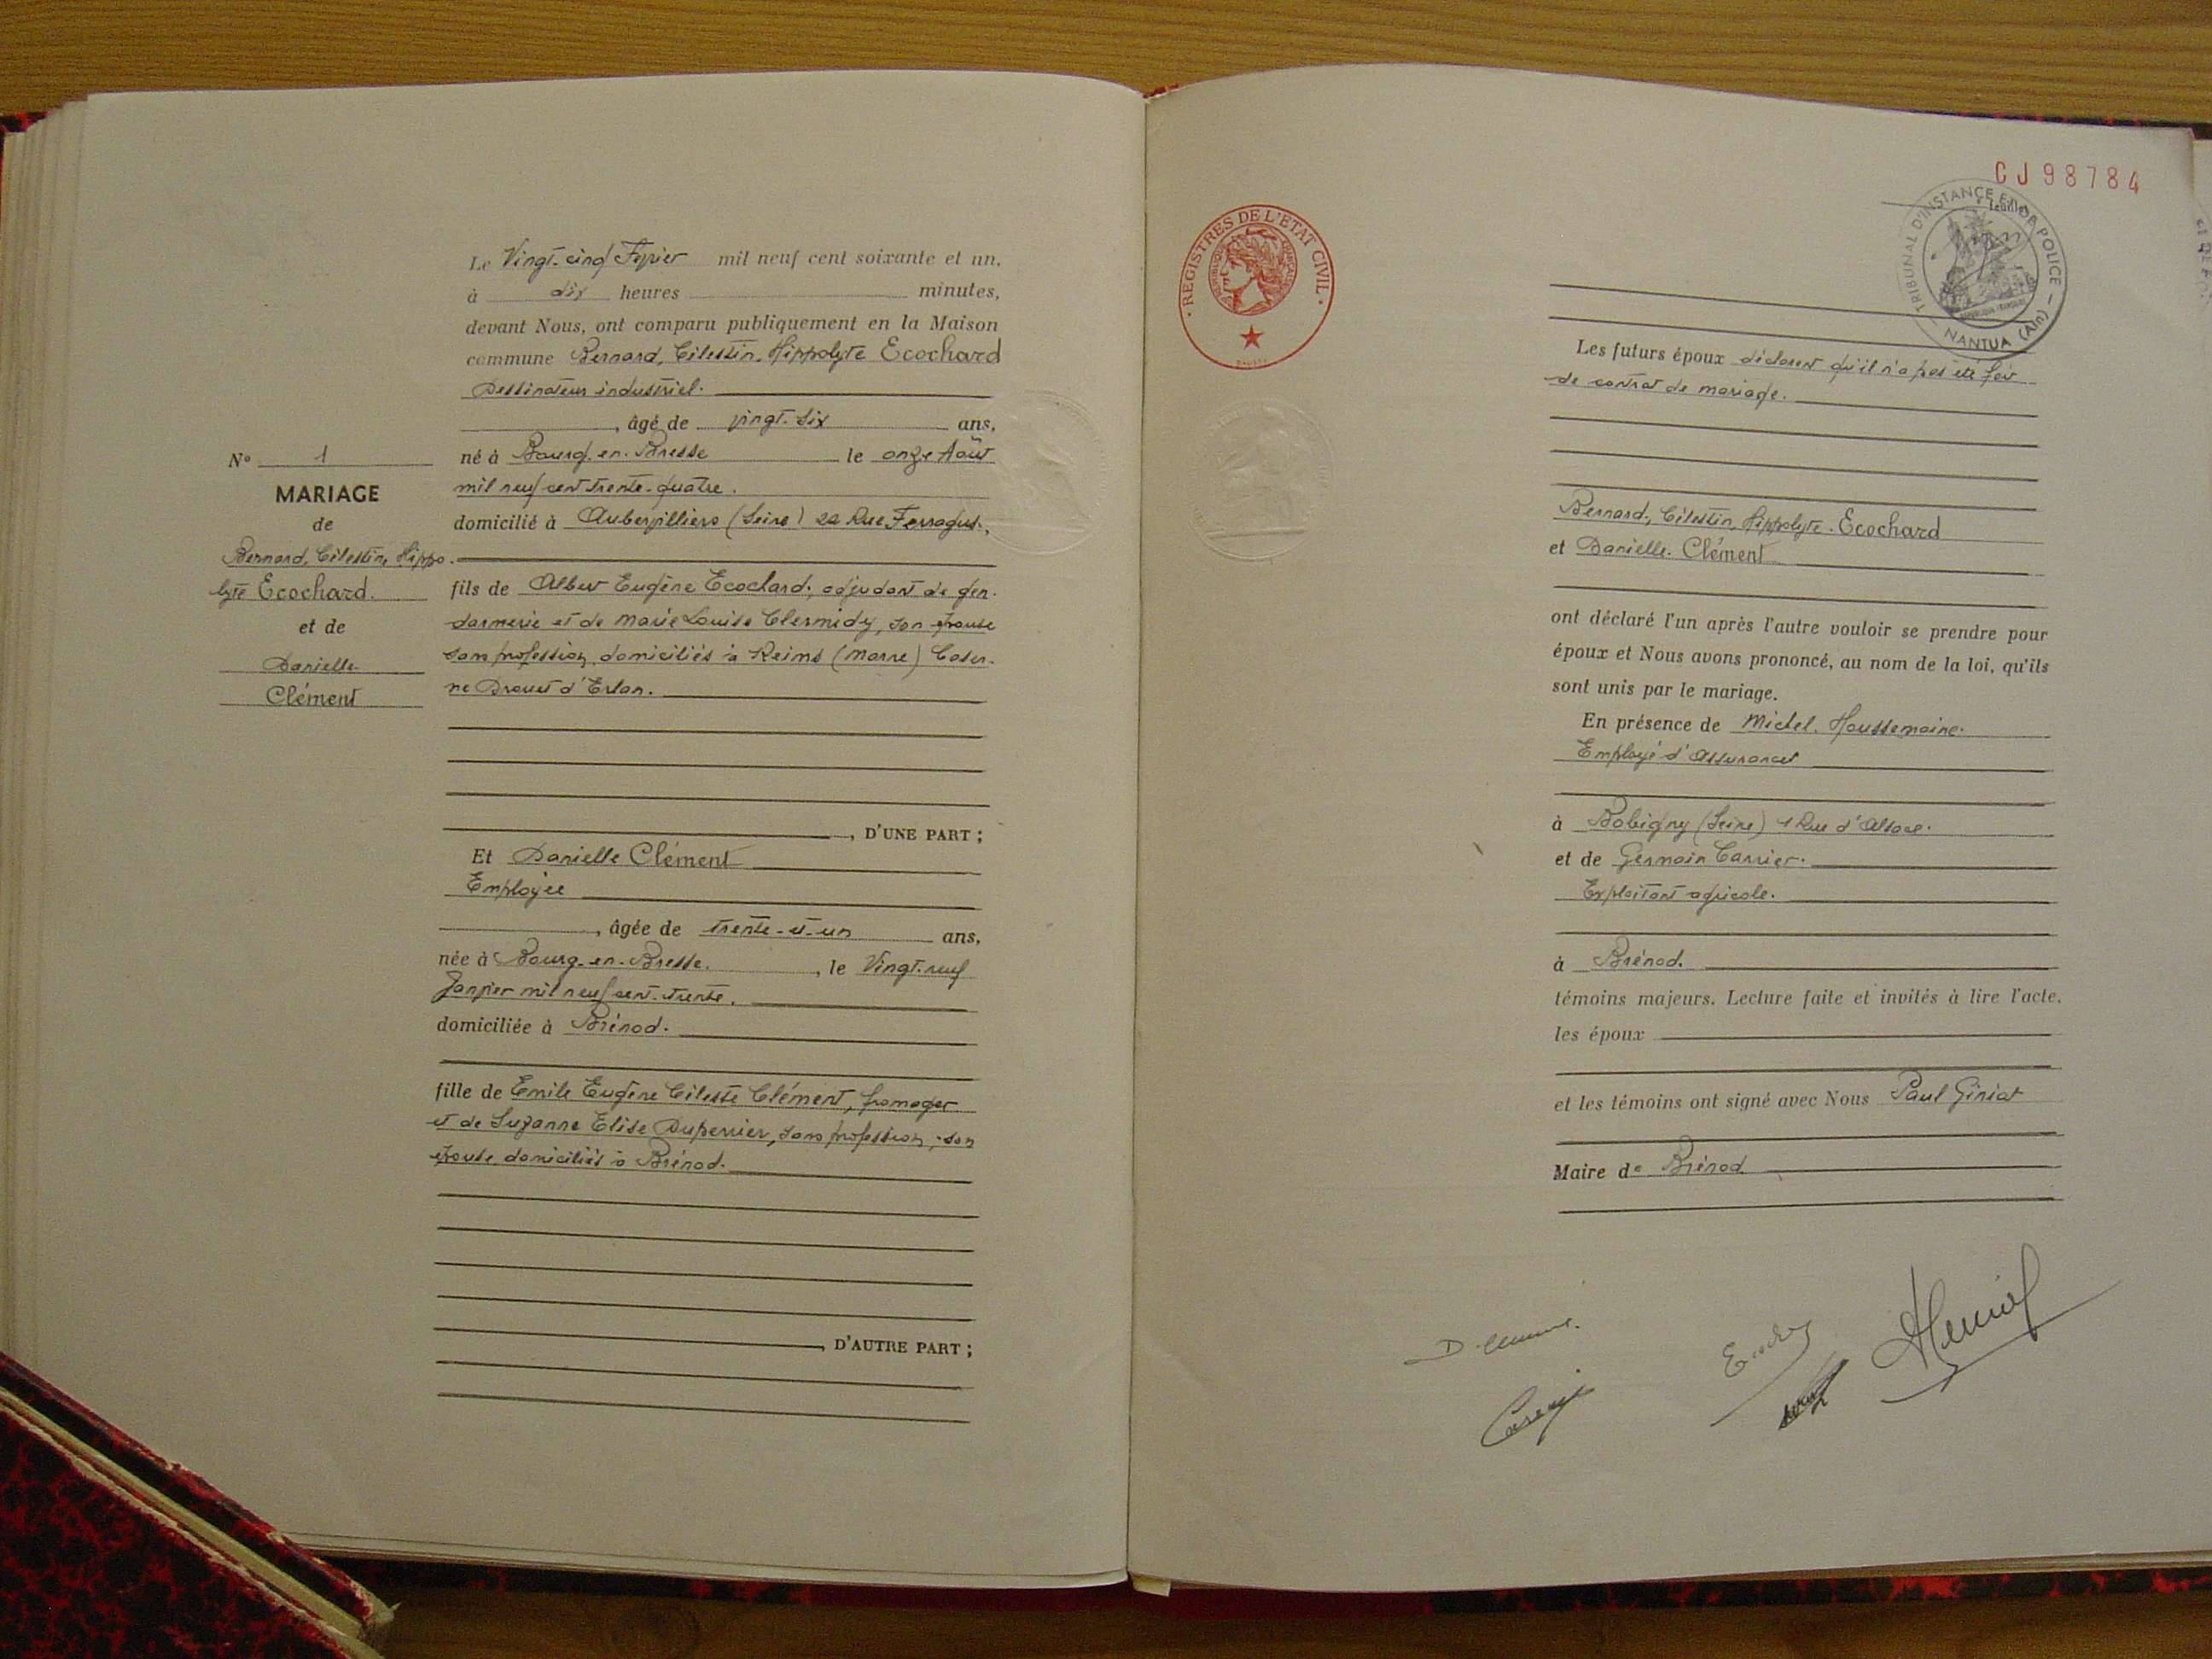 Le Vingt-cinq Février mil neuf cent soixante et un,
à dix heures minutes,
devant Nous, ont comparu publiquement en la Maison
commune Bernard, Célestin, Hippolyte Ecochard
Dessinateur industriel.
, âgé de vingt-six ans,
né à Bourg-en-Bresse le onze Août
mil neuf cent trente-quatre.
domicilié à Aubervilliers (Seine) 22 Rue Ferragus,
N° 1
MARIAGE
de
Bernard, Célestin, Hippo
lyte Ecochard.
et de
Danielle
Clément
fils de Albert Eugène Ecochard, adjudant de gen-
darmerie et de Marie Louise Clermidy, son épouse
sans profession, domiciliés à Reims (Marne) Caser-
ne Drouet d'Erlon.
, D'UNE PART ;
Et Danielle Clément
Employée
, âgée de trente-et-un ans,
née à Bourg-en-Bresse. , le Vingt-neuf
Janvier mil neuf cent-trente.
domiciliée à Brénod.
fille de Emile Eugène Céleste Clément, fromager
et de Suzanne Elise Duperrier, sans profession, son
épouse, domiciliés à Brénod.
, D'AUTRE PART ;
REGISTRES DE L'ÉTAT CIVIL
CJ98784
TRIBUNAL D'INSTANCE ET DE POLICE
NANTUA (Ain)
Les futurs époux déclarent qu'il n'a pas été fait
de contrat de mariage.
Bernard, Célestin, Hippolyte. Ecochard
et Danielle. Clément
ont déclaré l'un après l'autre vouloir se prendre pour
époux et Nous avons prononcé, au nom de la loi, qu'ils
sont unis par le mariage.
En présence de Michel. Houssemaine.
Employé d'Assurances
à Bobigny (Seine) 1 Rue d'Alsace.
et de Germain Carrier.
Exploitant agricole.
à Brénod.
témoins majeurs. Lecture faite et invités à lire l'acte,
les époux
et les témoins ont signé avec Nous Paul Giniat
Maire de Brénod